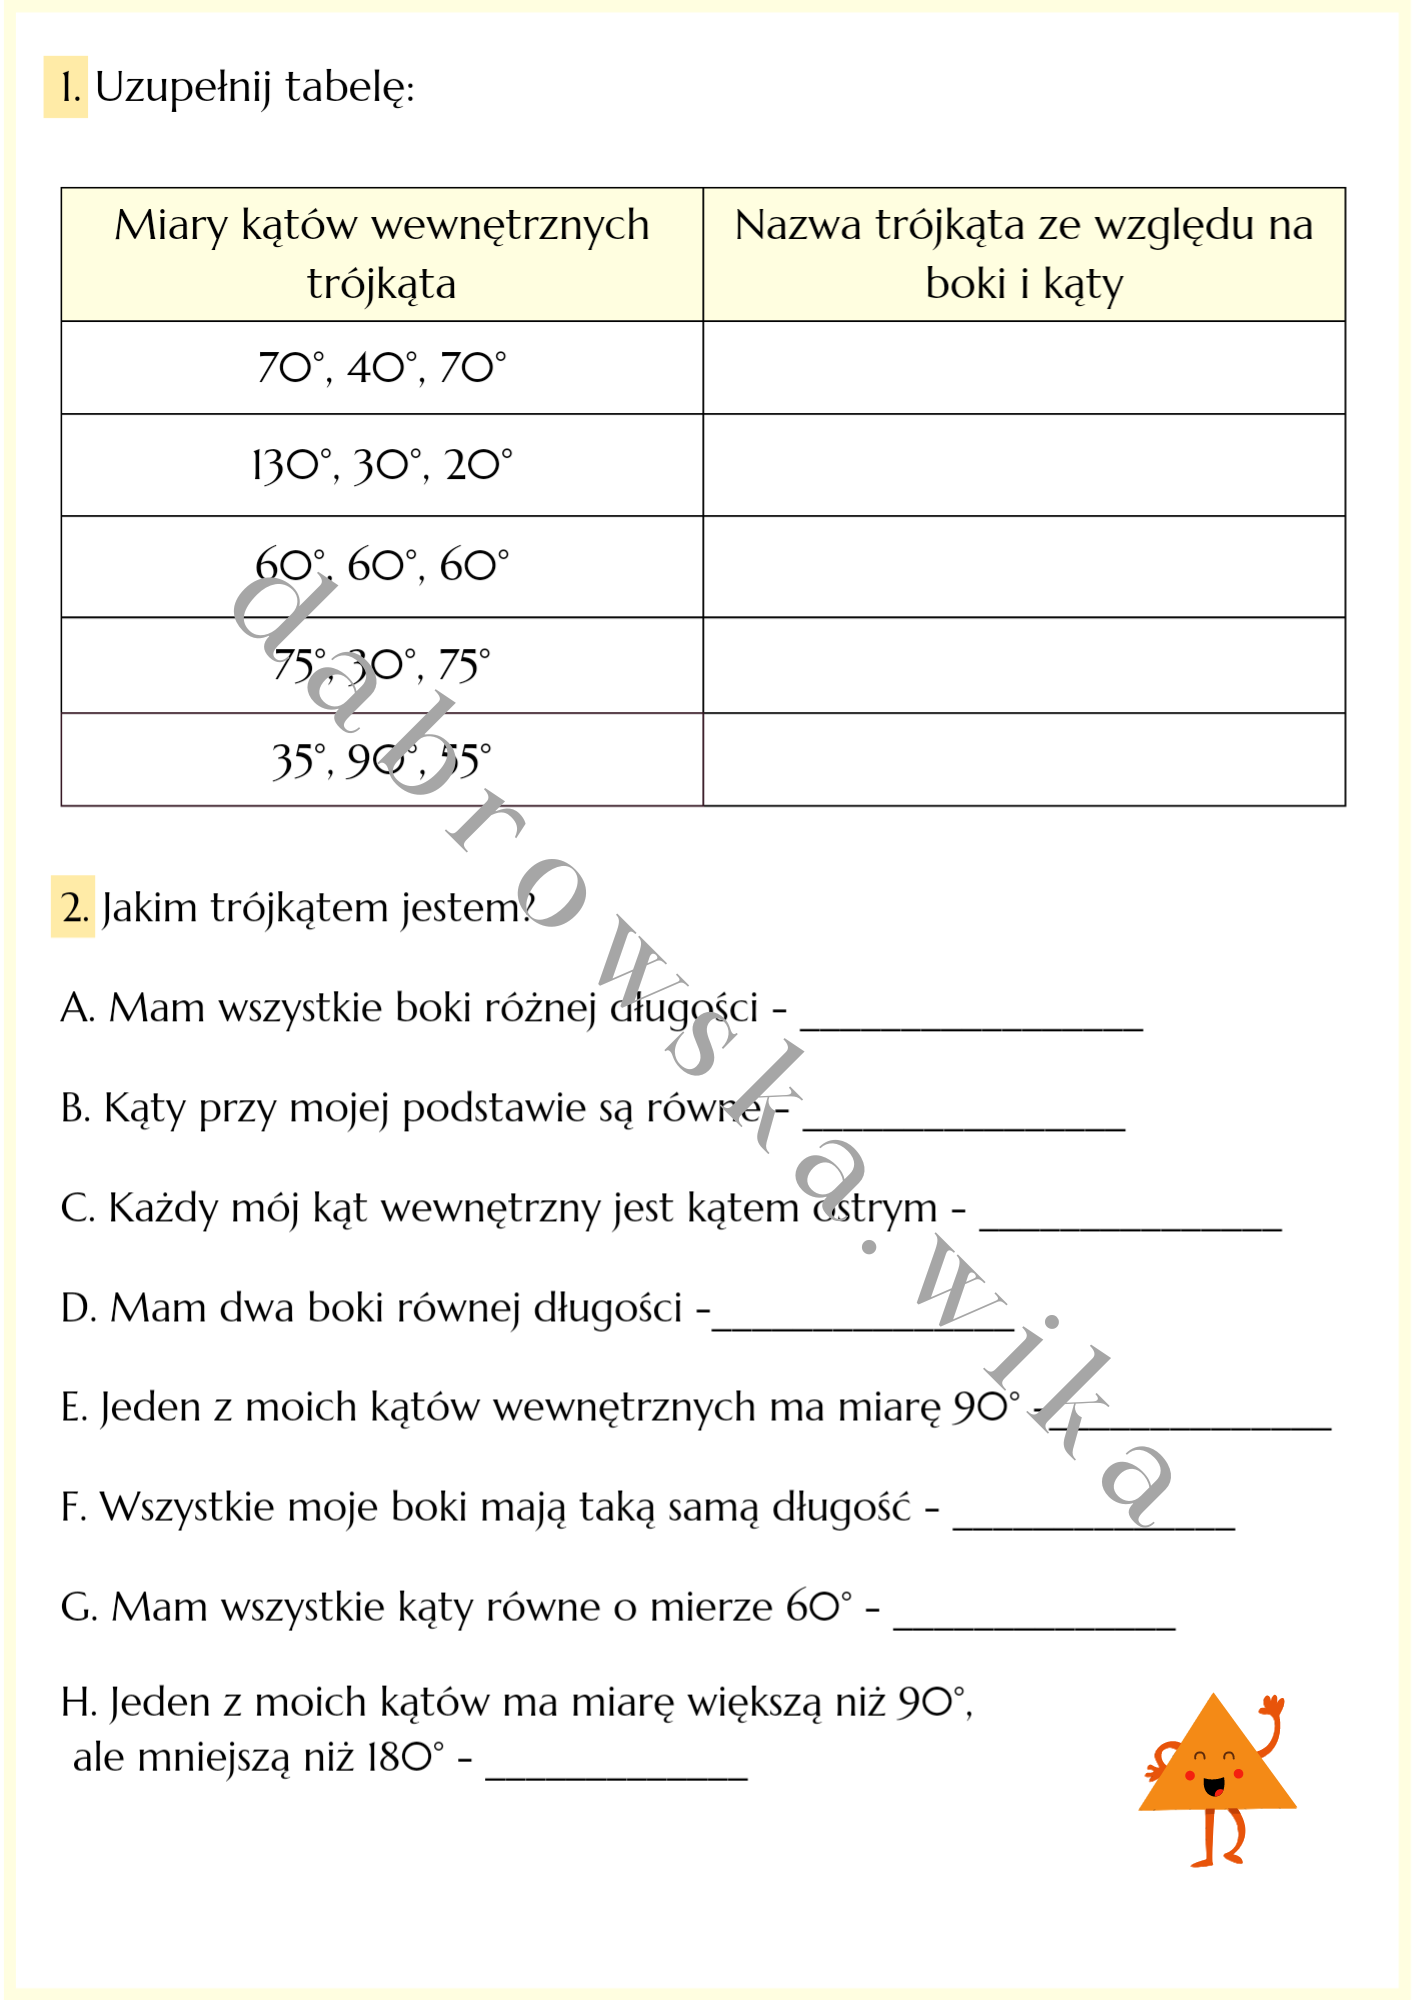 1. Uzupełnij tabelę:
Miary kątów wewnętrznych
trójkąta
Nazwa trójkąta ze względu na
boki i kąty
70°, 40°, 70°
130°, 30°, 20°
60°, 60°, 60°
75°, 30°, 75°
35°, 90°, 55°
2. Jakim trójkątem jestem?
A. Mam wszystkie boki różnej długości - _________________
B. Kąty przy mojej podstawie są równe - ________________
C. Każdy mój kąt wewnętrzny jest kątem ostrym - _______________
D. Mam dwa boki równej długości -_______________
E. Jeden z moich kątów wewnętrznych ma miarę 90° -______________
F. Wszystkie moje boki mają taką samą długość - ______________
G. Mam wszystkie kąty równe o mierze 60° - ______________
H. Jeden z moich kątów ma miarę większą niż 90°,
ale mniejszą niż 180° - _____________
dabrowska.wika